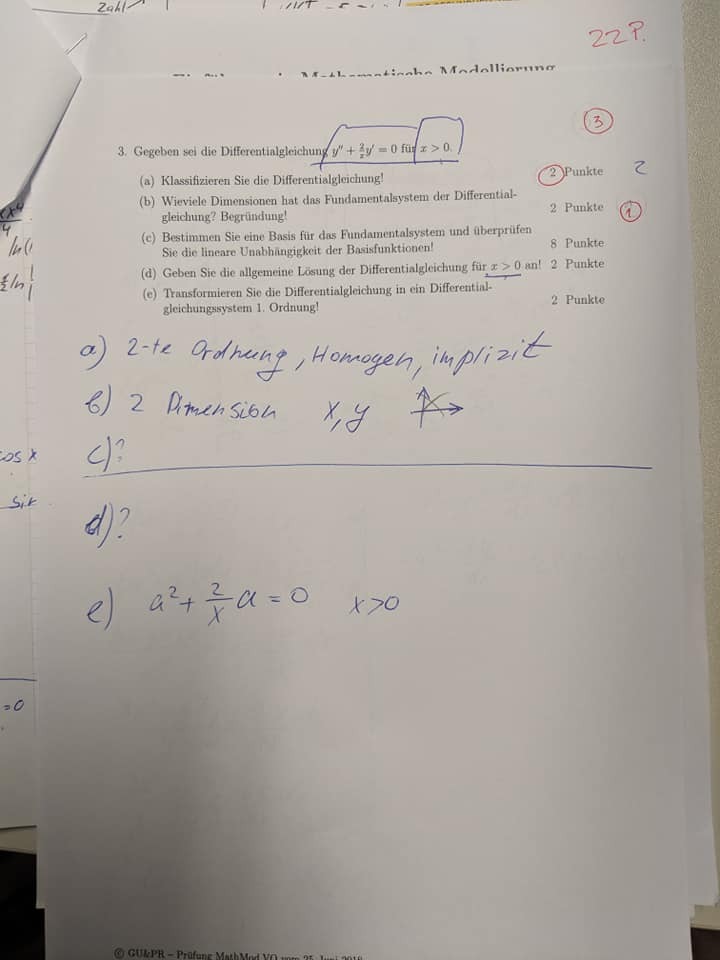 Zahl
22 P.
Mathematische Modellierung
3
3. Gegeben sei die Differentialgleichung y″ + 2/x y′ = 0 für x > 0.
(a) Klassifizieren Sie die Differentialgleichung! 2 Punkte 2
(b) Wieviele Dimensionen hat das Fundamentalsystem der Differential-
gleichung? Begründung! 2 Punkte 1
(c) Bestimmen Sie eine Basis für das Fundamentalsystem und überprüfen
Sie die lineare Unabhängigkeit der Basisfunktionen! 8 Punkte
(d) Geben Sie die allgemeine Lösung der Differentialgleichung für x > 0 an! 2 Punkte
(e) Transformieren Sie die Differentialgleichung in ein Differential-
gleichungssystem 1. Ordnung! 2 Punkte
a) 2-te Ordnung, Homogen, implizit
b) 2 Dimension x, y
c)?
d)?
e) a² + 2/x a = 0 x>0
cos x
=0
© GU&PR – Prüfung MathMod VO vom 25. Juni 2019